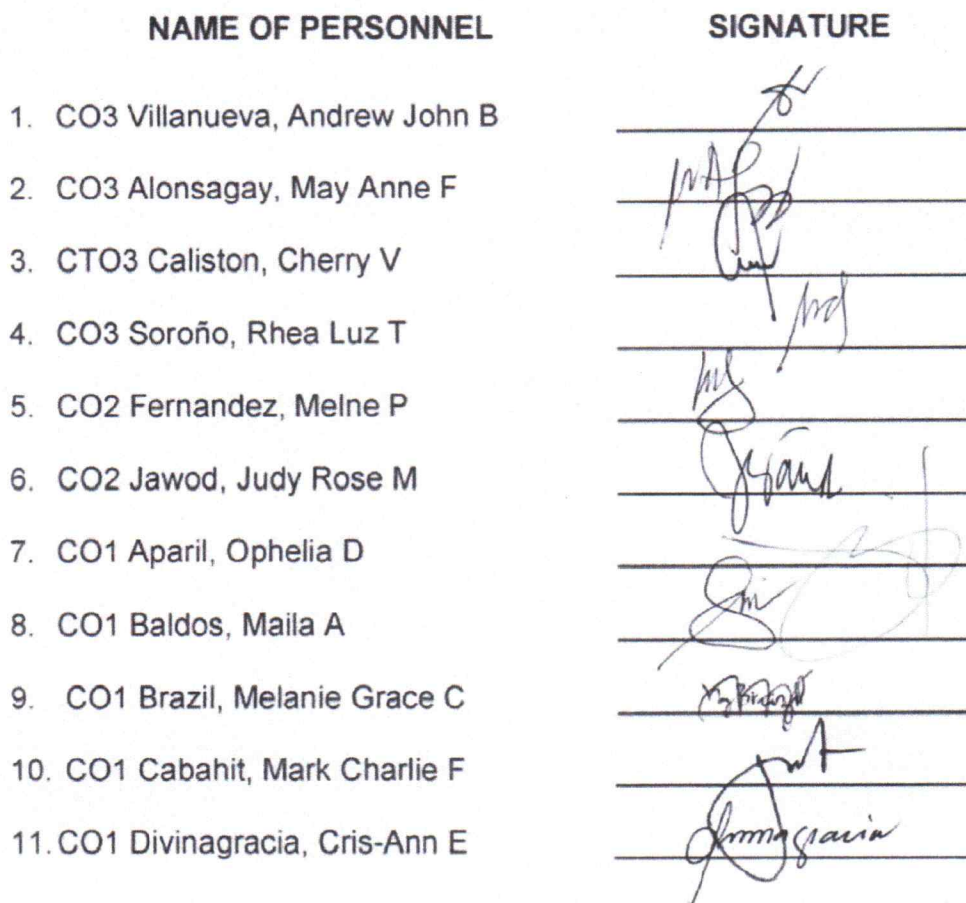 NAME OF PERSONNEL SIGNATURE
1. CO3 Villanueva, Andrew John B
2. CO3 Alonsagay, May Anne F
3. CTO3 Caliston, Cherry V
4. CO3 Soroño, Rhea Luz T
5. CO2 Fernandez, Melne P
6. CO2 Jawod, Judy Rose M
7. CO1 Aparil, Ophelia D
8. CO1 Baldos, Maila A
9. CO1 Brazil, Melanie Grace C
10. CO1 Cabahit, Mark Charlie F
11. CO1 Divinagracia, Cris-Ann E